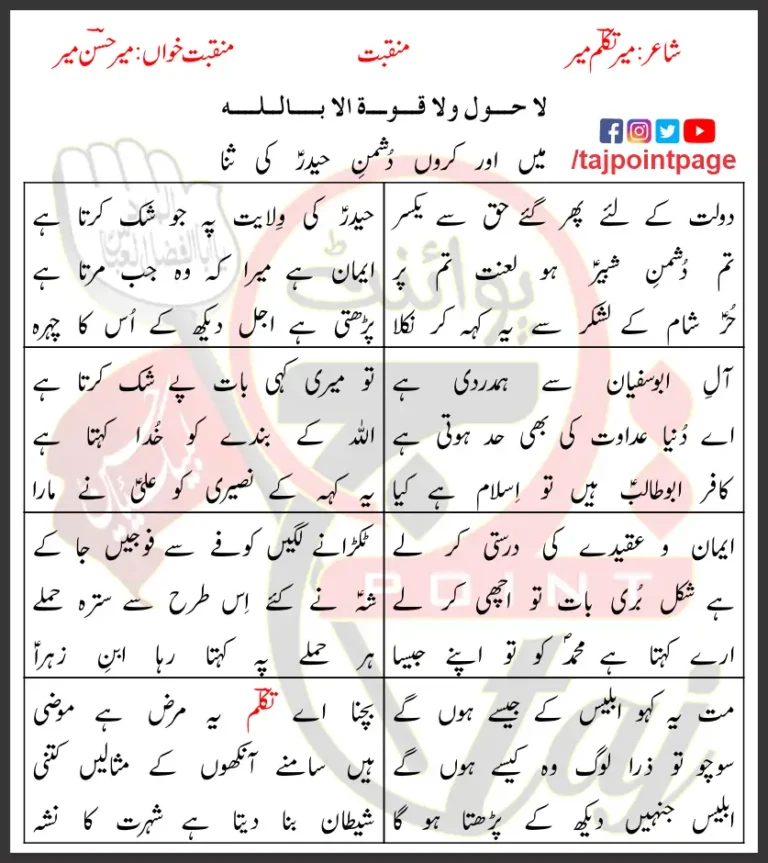 شاعر: میر تکلّم میر
منقبت
منقبت خواں: میر حسن میر
لا حول ولا قوۃ الا باللہ
میں اور کروں دُشمنِ حیدرؑ کی ثنا
/tajpointpage
دولت کے لئے پھر گئے حق سے یکسر
تم دُشمنِ شبیرؑ ہو لعنت تم پر
حُرؑ شام کے لشکر سے یہ کہہ کر نکلا
حیدرؑ کی وِلایت پہ جو شک کرتا ہے
ایمان ہے میرا کہ وہ جب مرتا ہے
پڑھتی ہے اجل دیکھ کے اُس کا چہرہ
آلِ ابوسفیان سے ہمدردی ہے
اے دُنیا عداوت کی بھی حد ہوتی ہے
کافر ابوطالبؑ ہیں تو اِسلام ہے کیا
تو میری کہی بات پے شک کرتا ہے
اللہ کے بندے کو خُدا کہتا ہے
یہ کہہ کے نصیری کو علیؑ نے مارا
ایمان و عقیدے کی درستی کر لے
ہے شکل بُری بات تو اچھی کر لے
ارے کہتا ہے محمدؐ کو تو اپنے جیسا
ٹکڑانے لگیں کوفے سے فوجیں جا کے
شہؑ نے کئے اِس طرح سے سترہ حملے
ہر حملے پہ کہتا رہا ابنِ زہراؑ
مت یہ کہو ابلیس کے جیسے ہوں گے
سوچو تو ذرا لوگ وہ کیسے ہوں گے
ابلیس جنہیں دیکھ کے پڑھتا ہو گا
بچنا اے تکلّم یہ مرض ہے موضی
ہیں سامنے آنکھوں کے مثالیں کتنی
شیطان بنا دیتا ہے شہرت کا نشہ
پوائنٹ
POINT
taj